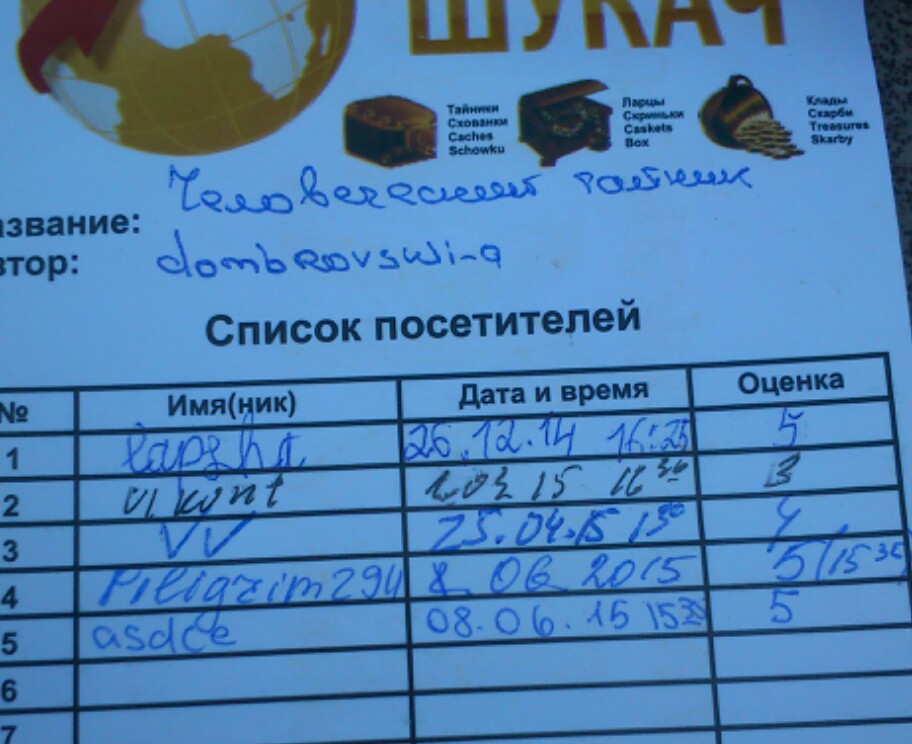 ШУКАЧ
Тайники
Схованки
Caches
Schowku
Ларцы
Скриньки
Caskets
Box
Клады
Скарби
Treasures
Skarby
азвание: Человеческий тайник
втор: dombrovswi-a
Список посетителей
№ Имя(ник) Дата и время Оценка
1 lapsha 26.12.14 16:25 5
2 vikont 1.03 15 16 30 3
3 VV 25.04.15 13 50 4
4 Piligrim294 8 06 2015 5 (15 35)
5 asdce 08.06.15 15 35 5
6
7